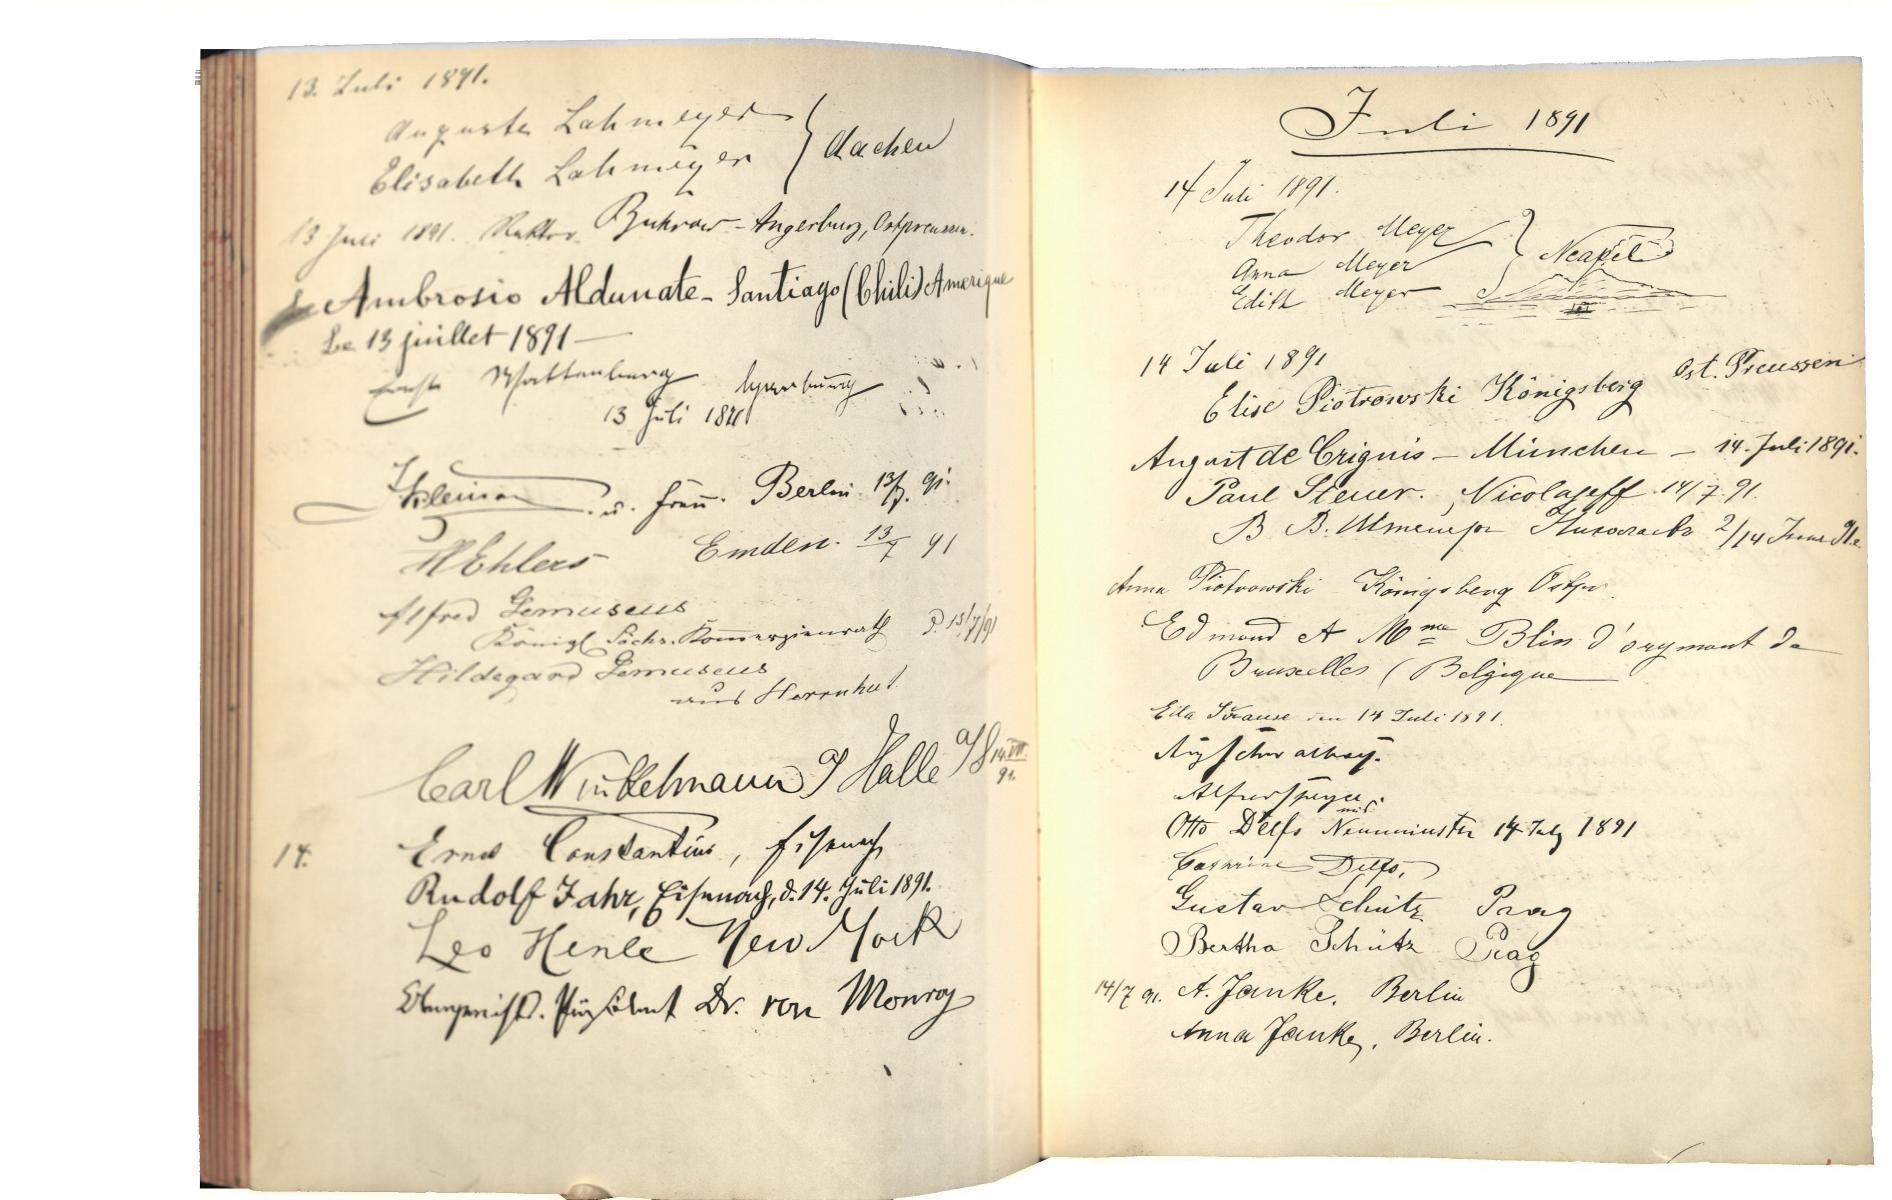 13. Juli 1891.
Auguste Lahmeyer
Elisabeth Lahmeyer } Aachen
13 Juli 1891. Rektor Buhrow - Angerburg, Ostpreussen.
Ambrosio Aldunate - Santiago (Chili) Amerique
Le 13 juillet 1891 -
13 Juli 1891
u. Frau. Berlin. 13/7. 91.
H Ehlers Emden. 13/7 91
Alfred Gemuseus
Königl. Sächs. Kommerzienrath d. 13/7/91
Hildegard Gemuseus
aus Herrnhut
Carl Winkelmann Halle a/S 14.VII. 91.
14. Ernst Constantius, Eisenach
Rudolf Jahr, Eisenach, d. 14. Juli 1891.
Leo Henle New York
Dr. von Monroy
Juli 1891
14 Juli 1891.
Theodor Meyer
Anna Meyer
Edith Meyer } Neapel
14 Juli 1891
Elise Piotrowski Königsberg Ost. Preussen
August de Crignis - München - 14. Juli 1891.
Paul Steuer., Nicolajeff 14/7. 91.
Anna Piotrowski Königsberg Ostpr.
Edmond et Mme Blin d'orymont de
Bruxelles (Belgique
Krause den 14 Juli 1891.
Otto Delfs Neumünster 14 July 1891
Cathrine Delfs,
Gustav Schütz Prag
Bertha Schütz Prag
14/7 91. A. Janke. Berlin
Anna Janke, Berlin.